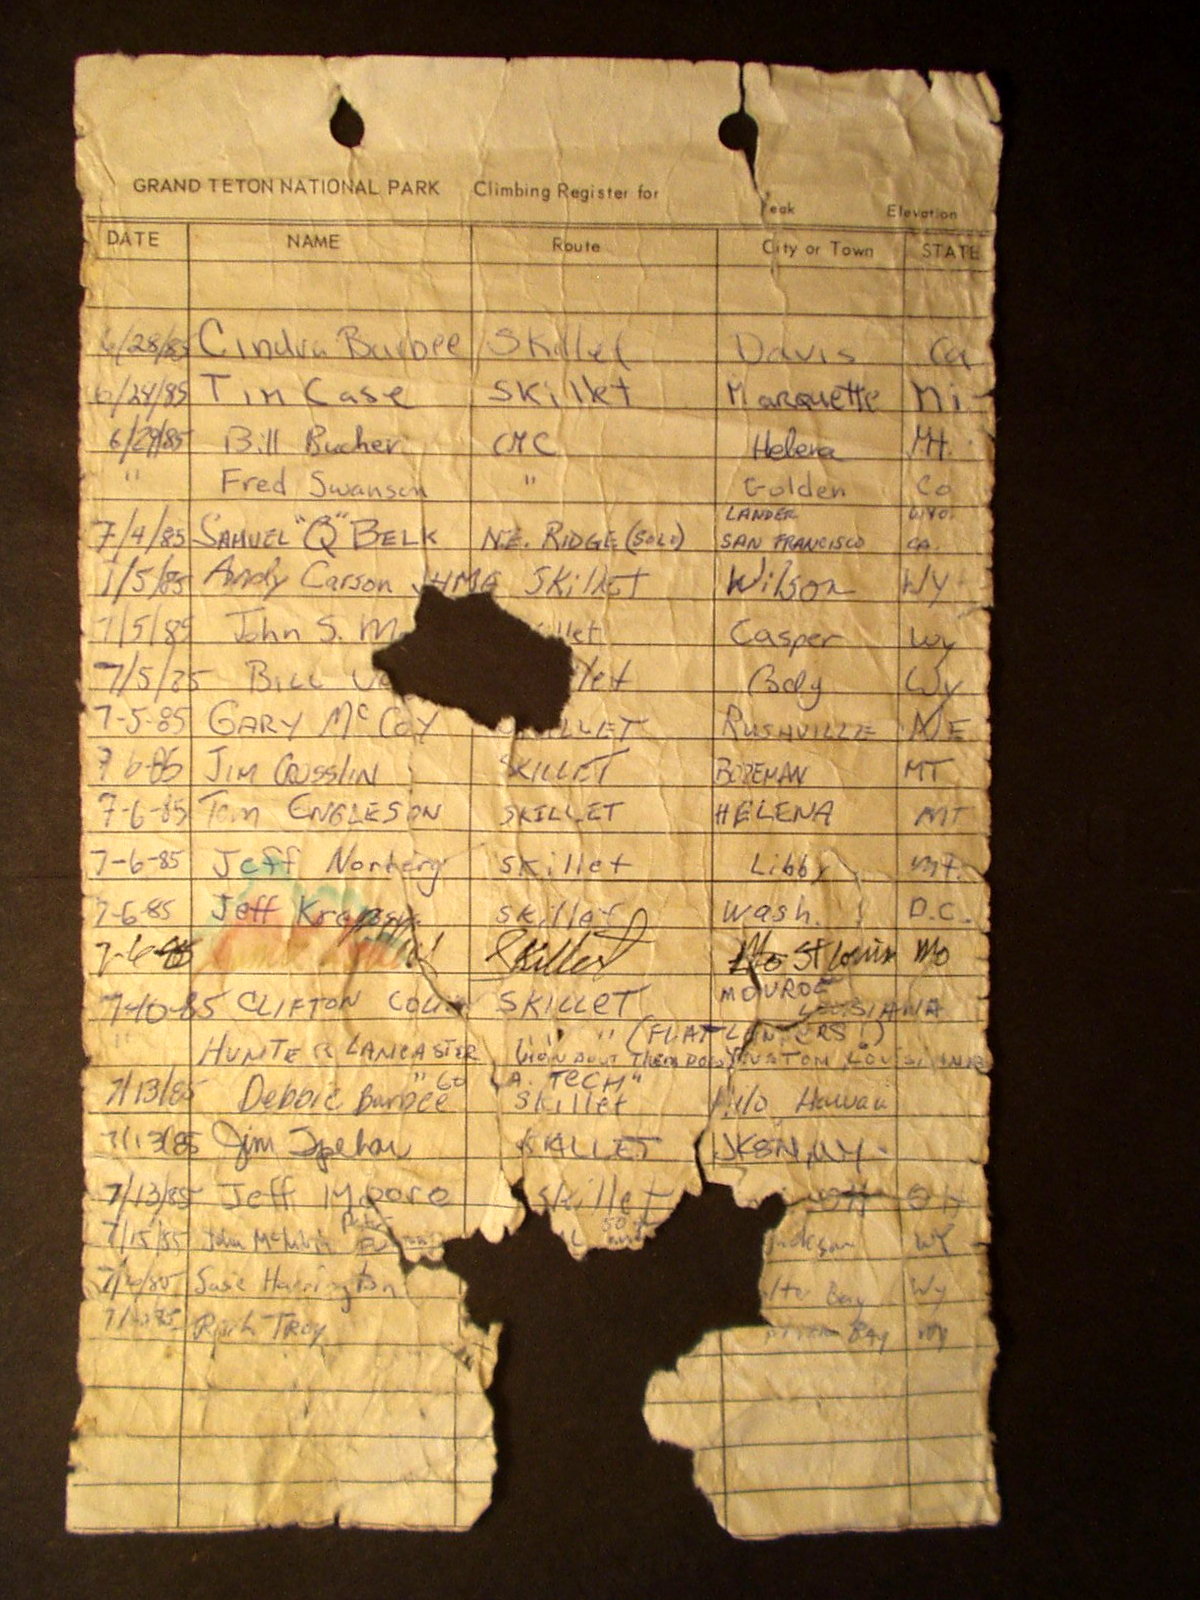 GRAND TETON NATIONAL PARK Climbing Register for Peak Elevation
DATE NAME Route City or Town STATE
6/28/85 Cindra Barbee Skillet Davis Ca
6/28/85 Tim Case Skillet Marquette Mi.
6/29/85 Bill Bucher CMC Helena Mt.
" Fred Swanson " Golden Co
LANDER WYO.
7/4/85 SAMUEL "Q" BELK N.E. RIDGE (SOLO) SAN FRANCISCO CA.
7/5/85 Andy Carson JHMG Skillet Wilson Wy
7/5/85 John S. M llet Casper Wy
7/5/85 BILL let Cody Wy
7-5-85 GARY McCOY SKILLET RUSHVILLE NE
7-6-85 JIM SKILLET BOZEMAN MT
7-6-85 Tom ENGLESON SKILLET HELENA MT
7-6-85 Jeff Norberg skillet Libby MT.
7-6-85 Jeff skillet Wash. D.C.
7-6-85 Skillet St Louis Mo
7-10-85 CLIFTON SKILLET MONROE LOUISIANA
" HUNTER LANCASTER " " (FLATLANDERS!)
(HOW BOUT THEM DOGS) RUSTON LOUISIANA
"GO LA. TECH"
7/13/85 Debbie Barbee Skillet Hilo Hawaii
7/13/85 Jim Spehar SKILLET JKSN, WY.
7/13/85 Jeff Moore skillet OH
7/15/85 John Jackson WY
Susie Harrington lter Bay Wy
Rich Troy Bay Wy